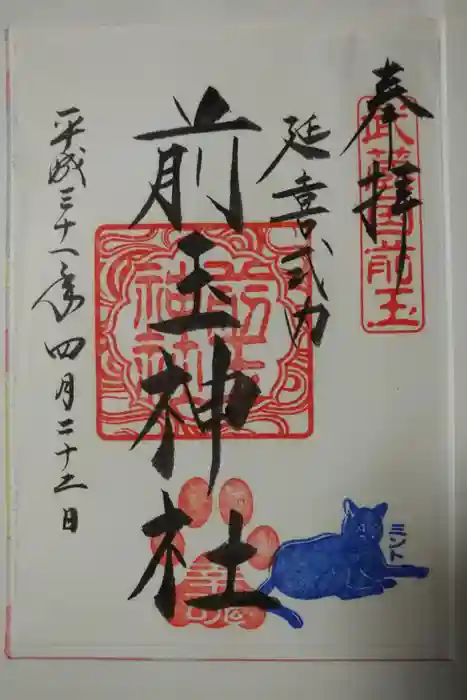 奉拝
武蔵国前玉
延喜式内
前玉神社
前玉神社
平成三十一年四月二十二日
ミント